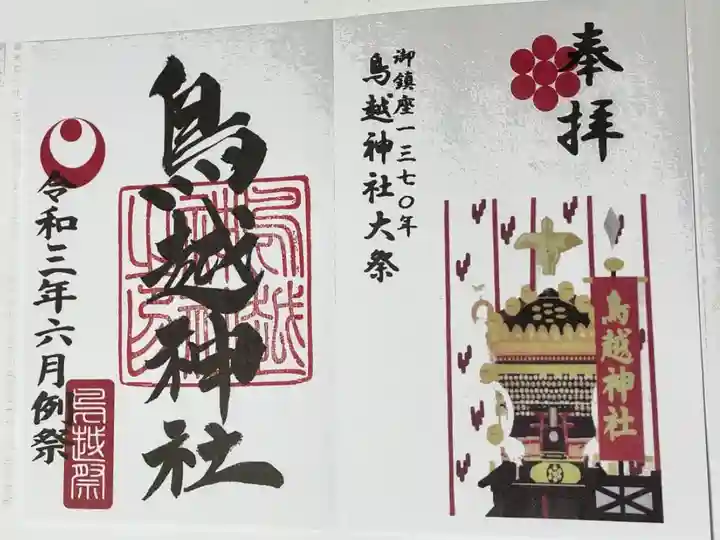 奉拝
御鎮座一三七〇年
鳥越神社大祭
鳥越神社
鳥越神社
令和三年六月例祭
鳥越祭